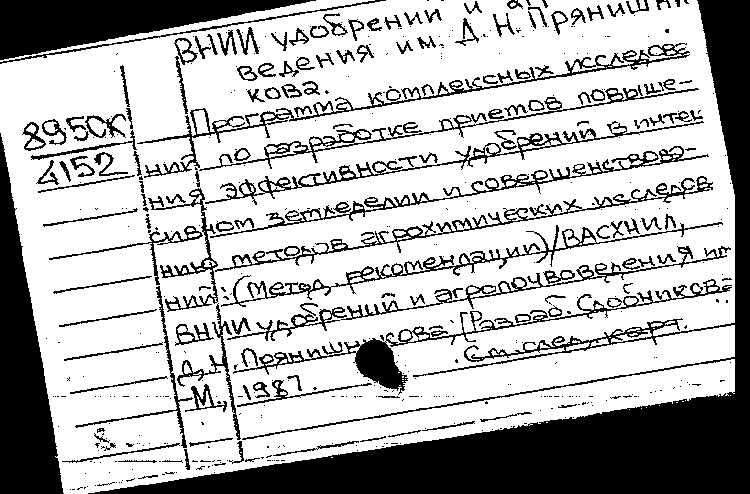 ВНИИ удобрений и
ведения им. Д. Н. Прянишни
кова.
89-50К
4152
Программа комплексных исследова
ний по разработке приемов повыше-
ния эффективности удобрений в интен
сивном земледелии и совершенствова-
нию методов агрохимических исследова
ний: (Метод. рекомендации)/ВАСХНИЛ,
ВНИИ удобрений и агропочвоведения им
Д. Н. Прянишникова; [Разраб. Сдобникова
М., 1987. См. след. карт.
8.